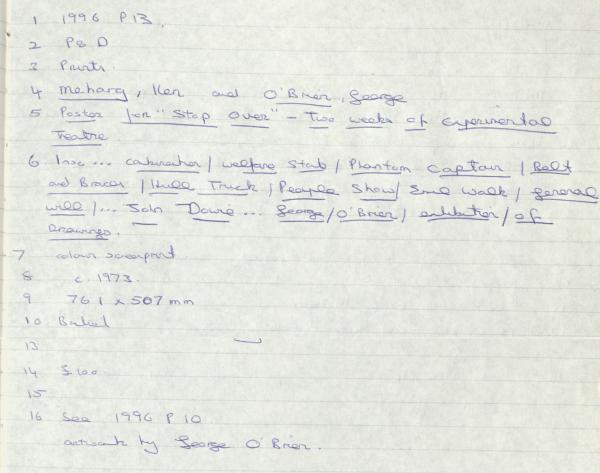 1 1996 P 13.
2 P & D
3 Prints.
4 Meharg, Ken and O'Brien, George
5 Poster for "Stop Over" - Two weeks of Experimental
Theatre
6 Insc ... / Welfare Stab / Phantom Captain / Belt
and Braces / Hull Truck / People Show / Emil Wolk / general
will / ... John Dowie ... George / O'Brien / exhibition / of
drawings.
7 colour screenprint
8 c. 1973.
9 761 x 507 mm
10
13
14 £100
15
16 See 1996 P 10
artwork by George O'Brien.